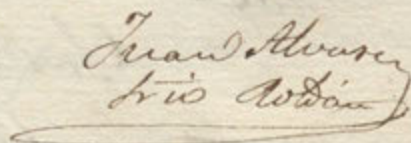 Juan Alvarez
Srio Roldán